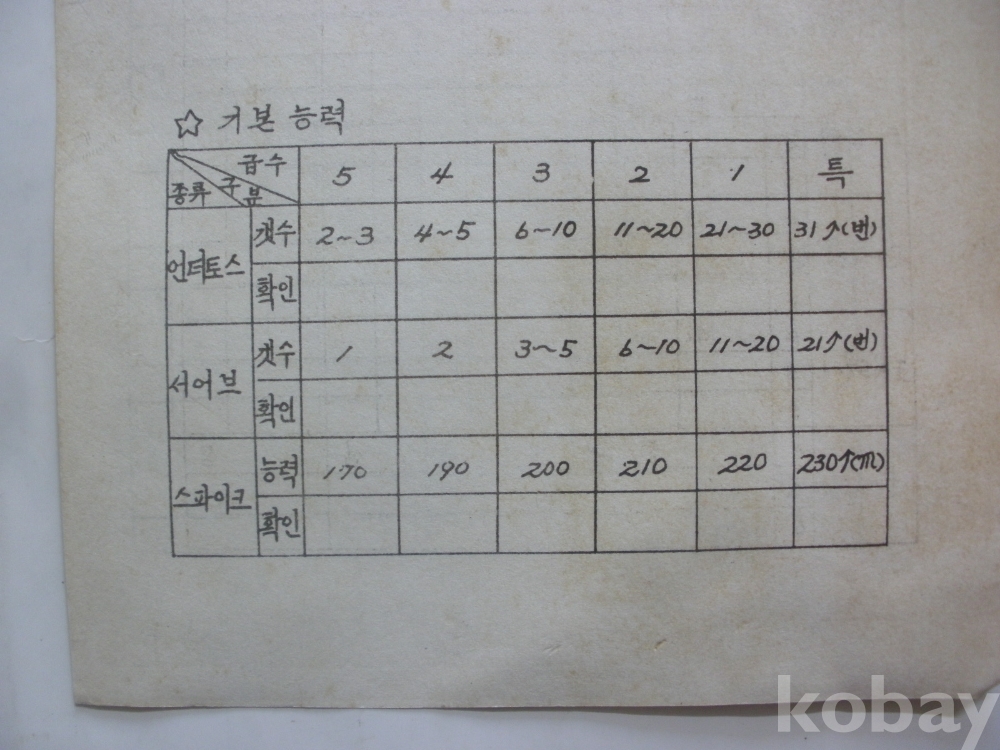 ☆ 기본 능력
종류 구분 급수 5 4 3 2 1 특
언더토스 갯수 2~3 4~5 6~10 11~20 21~30 31↑(번)
확인
서어브 갯수 1 2 3~5 6~10 11~20 21↑(번)
확인
스파이크 능력 170 190 200 210 220 230↑(m)
확인
kobay